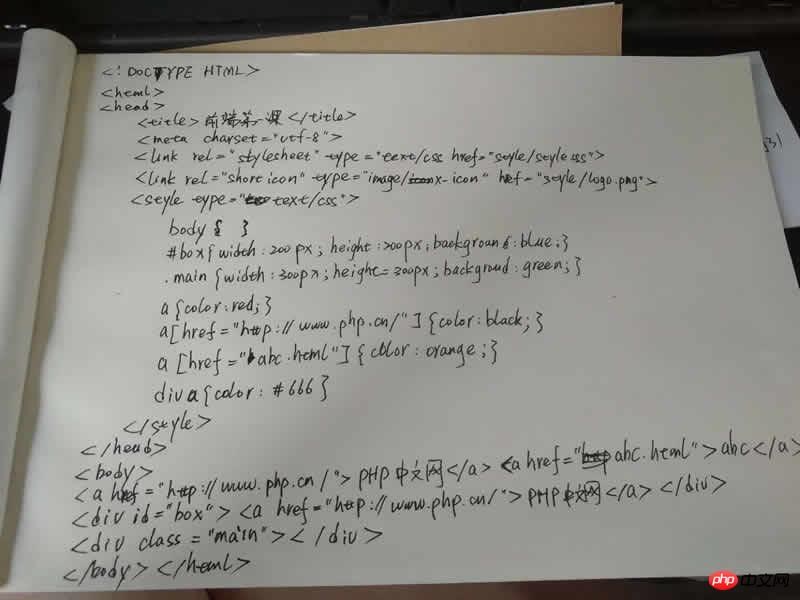 <!DOCTYPE HTML>
<html>
<head>
<title>前端第一课</title>
<meta charset="utf-8">
<link rel="stylesheet" type="text/css href="style/style.css">
<link rel="short icon" type="image/x-icon" href="style/logo.png">
<style type="text/css">
body { }
#box{width:200px; height:200px; background:blue;}
.main {width:300px; height=300px; backgroud:green;}
a{color:red;}
a[href="http://www.php.cn/"]{color:black;}
a [href="abc.html"]{color:orange;}
div a{color:#666}
</style>
</head>
<body>
<a href="http://www.php.cn/">PHP中文网</a> <a href="abc.html">abc</a>
<div id="box"> <a href="http://www.php.cn/">PHP中文网</a> </div>
<div class="main"></div>
</body></html>
php 中文网